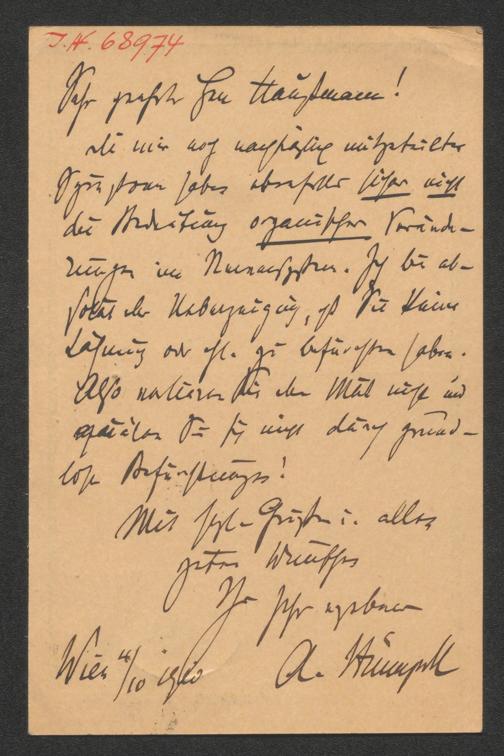 I.N. 68974
Sehr geehrter Herr Haußmann!
die mir noch nachträglich mitgeteilten
Symptome haben ebenfalls sicher nicht
die Bedeutung organischer Verände-
rungen im Nervensystem. Ich bin ab-
solut der Ueberzeugung, daß Sie keine
Lähmung oder ähnl. zu befürchten haben.
Also verlieren Sie den Mut nicht und
quälen Sie sich nicht durch grund-
lose Befürchtungen!
Mit herzl. Grüßen u. allen
guten Wünschen
Ihr sehr ergebener
Wien /10 1920 A.